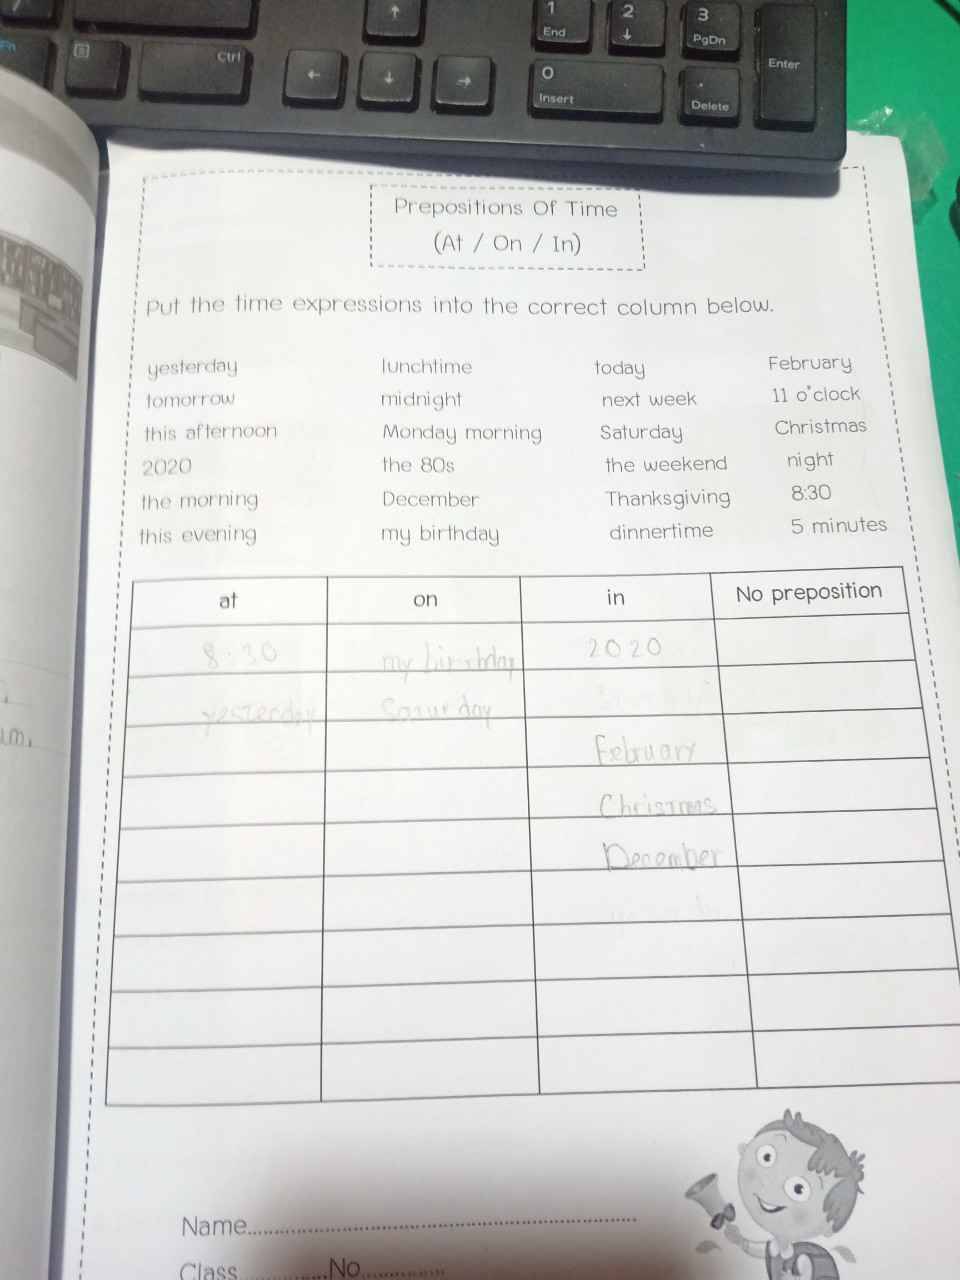 Fn
Ctrl
↑
1
End
2
↓
3
PgDn
←
↓
→
0
Insert
.
Delete
Enter
Prepositions Of Time
(At / On / In)
Put the time expressions into the correct column below.
yesterday lunchtime today February
tomorrow midnight next week 11 o'clock
this afternoon Monday morning Saturday Christmas
2020 the 80s the weekend night
the morning December Thanksgiving 8:30
this evening my birthday dinnertime 5 minutes
at on in No preposition
8:30 my birthday 2020
yesterday Saturday
February
Christmas
December
Name
Class No